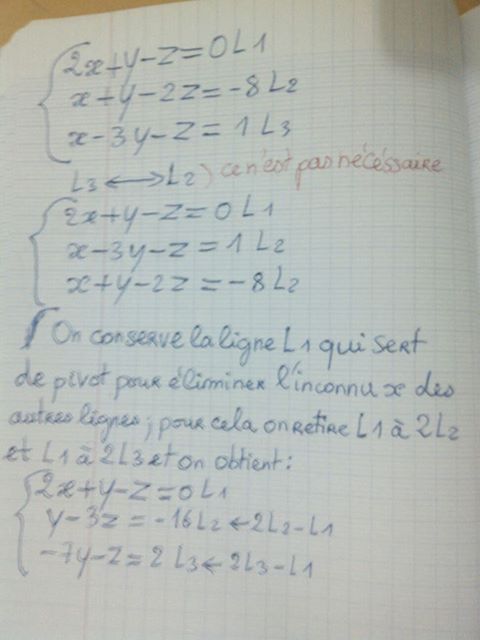 2x+y-z=0 L1
x+y-2z=-8 L2
x-3y-z=1 L3
L3 ↔ L2 ) ce n'est pas nécéssaire
2x+y-z=0 L1
x-3y-z=1 L2
x+y-2z=-8 L2
On conserve la ligne L1 qui sert
de pivot pour éliminer l'inconnu x des
autres lignes; pour cela on retire L1 à 2L2
et L1 à 2L3 et on obtient:
2x+y-z=0 L1
y-3z=-16 L2←2L2-L1
-7y-z=2 L3←2L3-L1